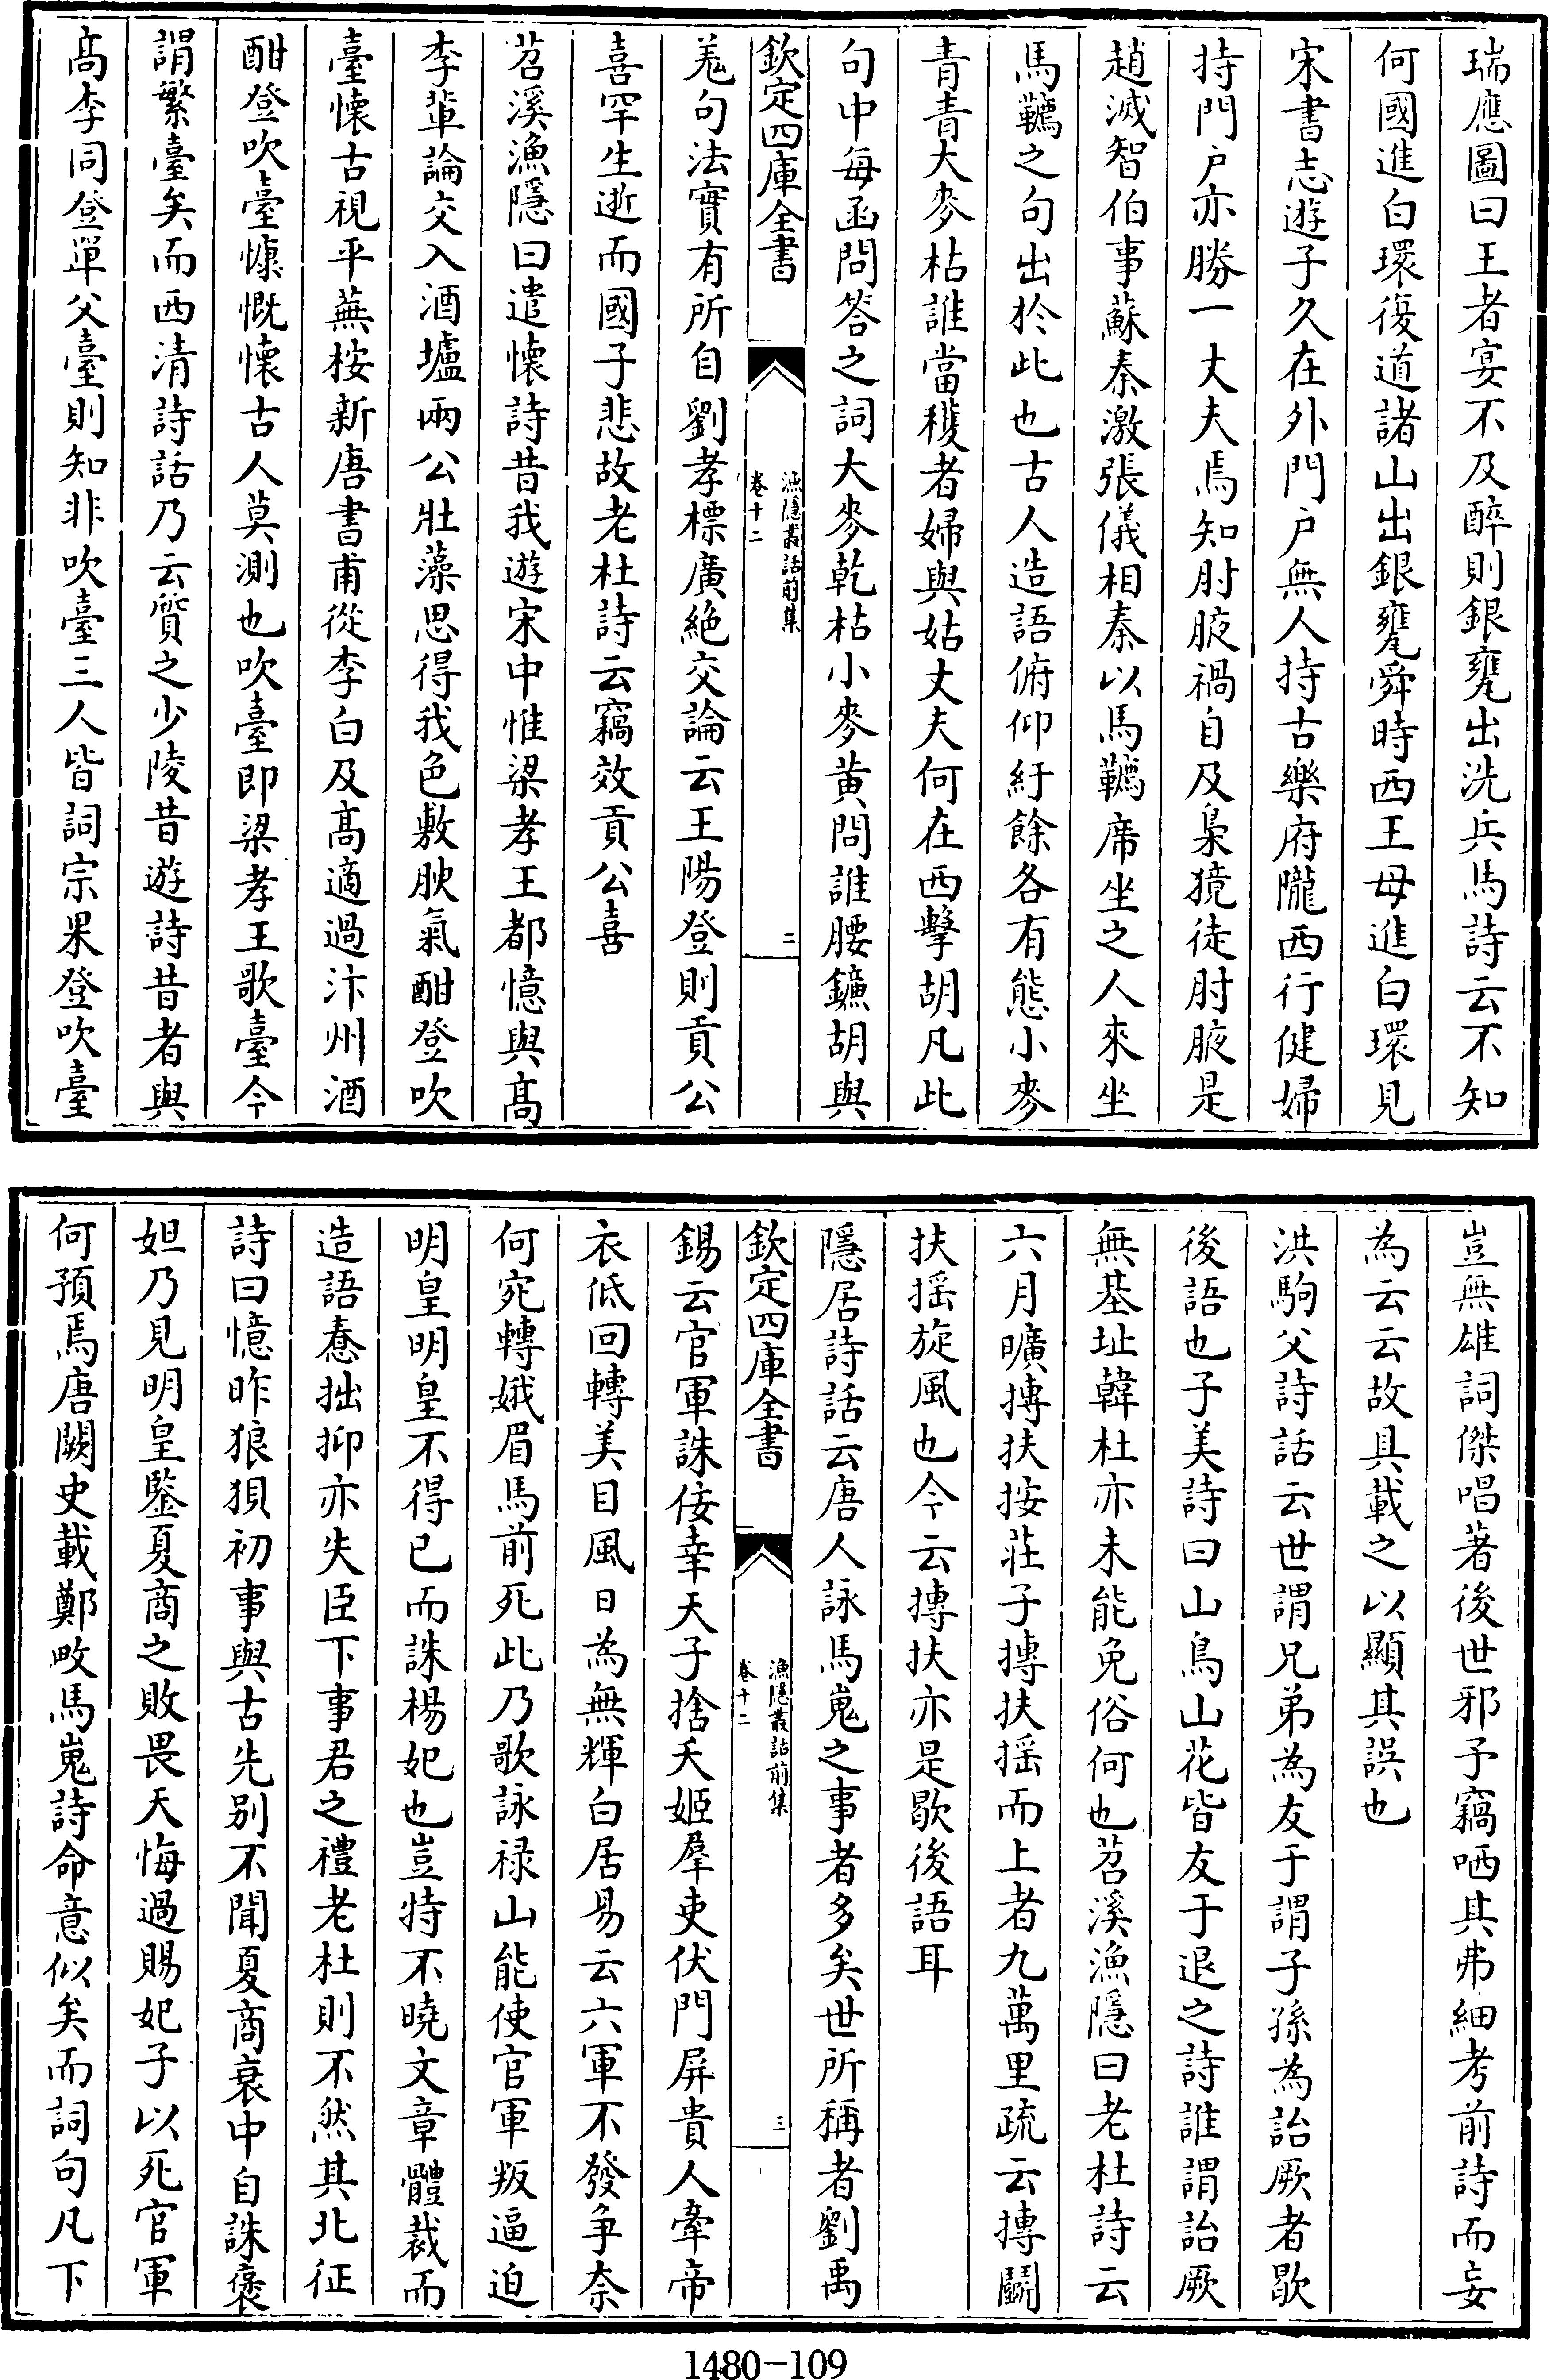 瑞應圖曰王者宴不及醉則銀甕出洗兵馬詩云不知
何國進白環復道諸山出銀甕舜時西王母進白環見
宋書志遊子久在外門户無人持古樂府隴西行健婦
持門户亦勝一丈夫焉知肘腋禍自及梟獍徒肘腋是
趙滅智伯事蘇秦激張儀相秦以馬韉席坐之人來坐
馬韉之句出於此也古人造語俯仰紆餘各有態小麥
青青大麥枯誰當穫者婦與姑丈夫何在西擊胡凡此
句中每函問答之詞大麥乾枯小麥黄問誰腰鐮胡與
欽定四庫全書
漁隱叢話前集
卷十二
二
羗句法實有所自劉孝標廣絶交論云王陽登則貢公
喜罕生逝而國子悲故老杜詩云竊效貢公喜
苕溪漁隱曰遣懷詩昔我遊宋中惟梁孝王都憶與髙
李輩論交入酒壚兩公壯藻思得我色敷腴氣酣登吹
臺懷古視平蕪桉新唐書甫從李白及髙適過汴州酒
酣登吹臺慷慨懷古人莫測也吹臺即梁孝王歌臺今
謂繁臺矣而西清詩話乃云質之少陵昔遊詩昔者與
髙李同登單父臺則知非吹臺三人皆詞宗果登吹臺
豈無雄詞傑唱著後世邪予竊哂其弗細考前詩而妄
為云云故具載之以顯其誤也
洪駒父詩話云世謂兄弟為友于謂子孫為詒厥者歇
後語也子美詩曰山鳥山花皆友于退之詩誰謂詒厥
無基址韓杜亦未能免俗何也苕溪漁隱曰老杜詩云
六月曠摶扶按莊子摶扶揺而上者九萬里疏云摶鬭
扶揺旋風也今云摶扶亦是歇後語耳
隱居詩話云唐人詠馬嵬之事者多矣世所稱者劉禹
欽定四庫全書
漁隱叢話前集
卷十二
三
錫云官軍誅佞幸天子捨夭姬羣吏伏門屏貴人牽帝
衣低回轉美目風日為無輝白居易云六軍不發争奈
何宛轉娥眉馬前死此乃歌詠禄山能使官軍叛逼迫
明皇明皇不得已而誅楊妃也豈特不曉文章體裁而
造語惷拙抑亦失臣下事君之禮老杜則不然其北征
詩曰憶昨狼狽初事與古先别不聞夏商衰中自誅褒
妲乃見明皇鑒夏商之敗畏天悔過賜妃子以死官軍
何預焉唐闕史載鄭畋馬嵬詩命意似矣而詞句凡下
1480-109